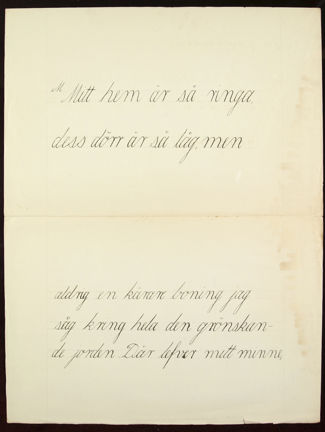 M Mitt hem är så ringa,
dess dörr är så låg, men
aldrig en kärare boning jag
såg kring hela den grönskan-
de jorden Där lefver mitt minne,